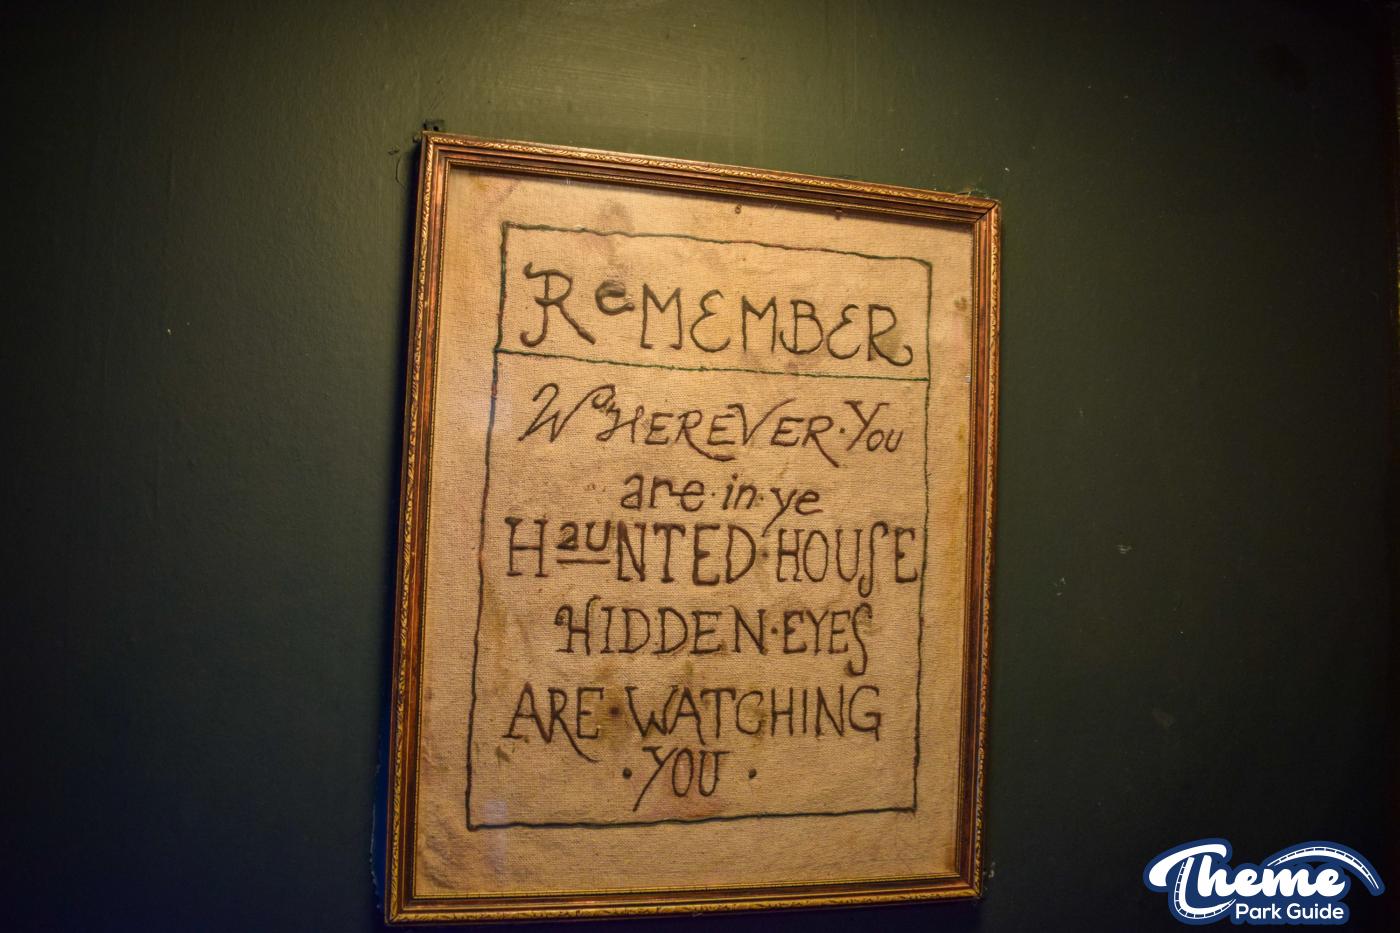 ReMEMBER
WHEREVER·YOU
are·in·ye
HauNTED·HOUSE
HIDDEN·EYES
ARE·WATCHING
·YOU·
Theme
Park Guide